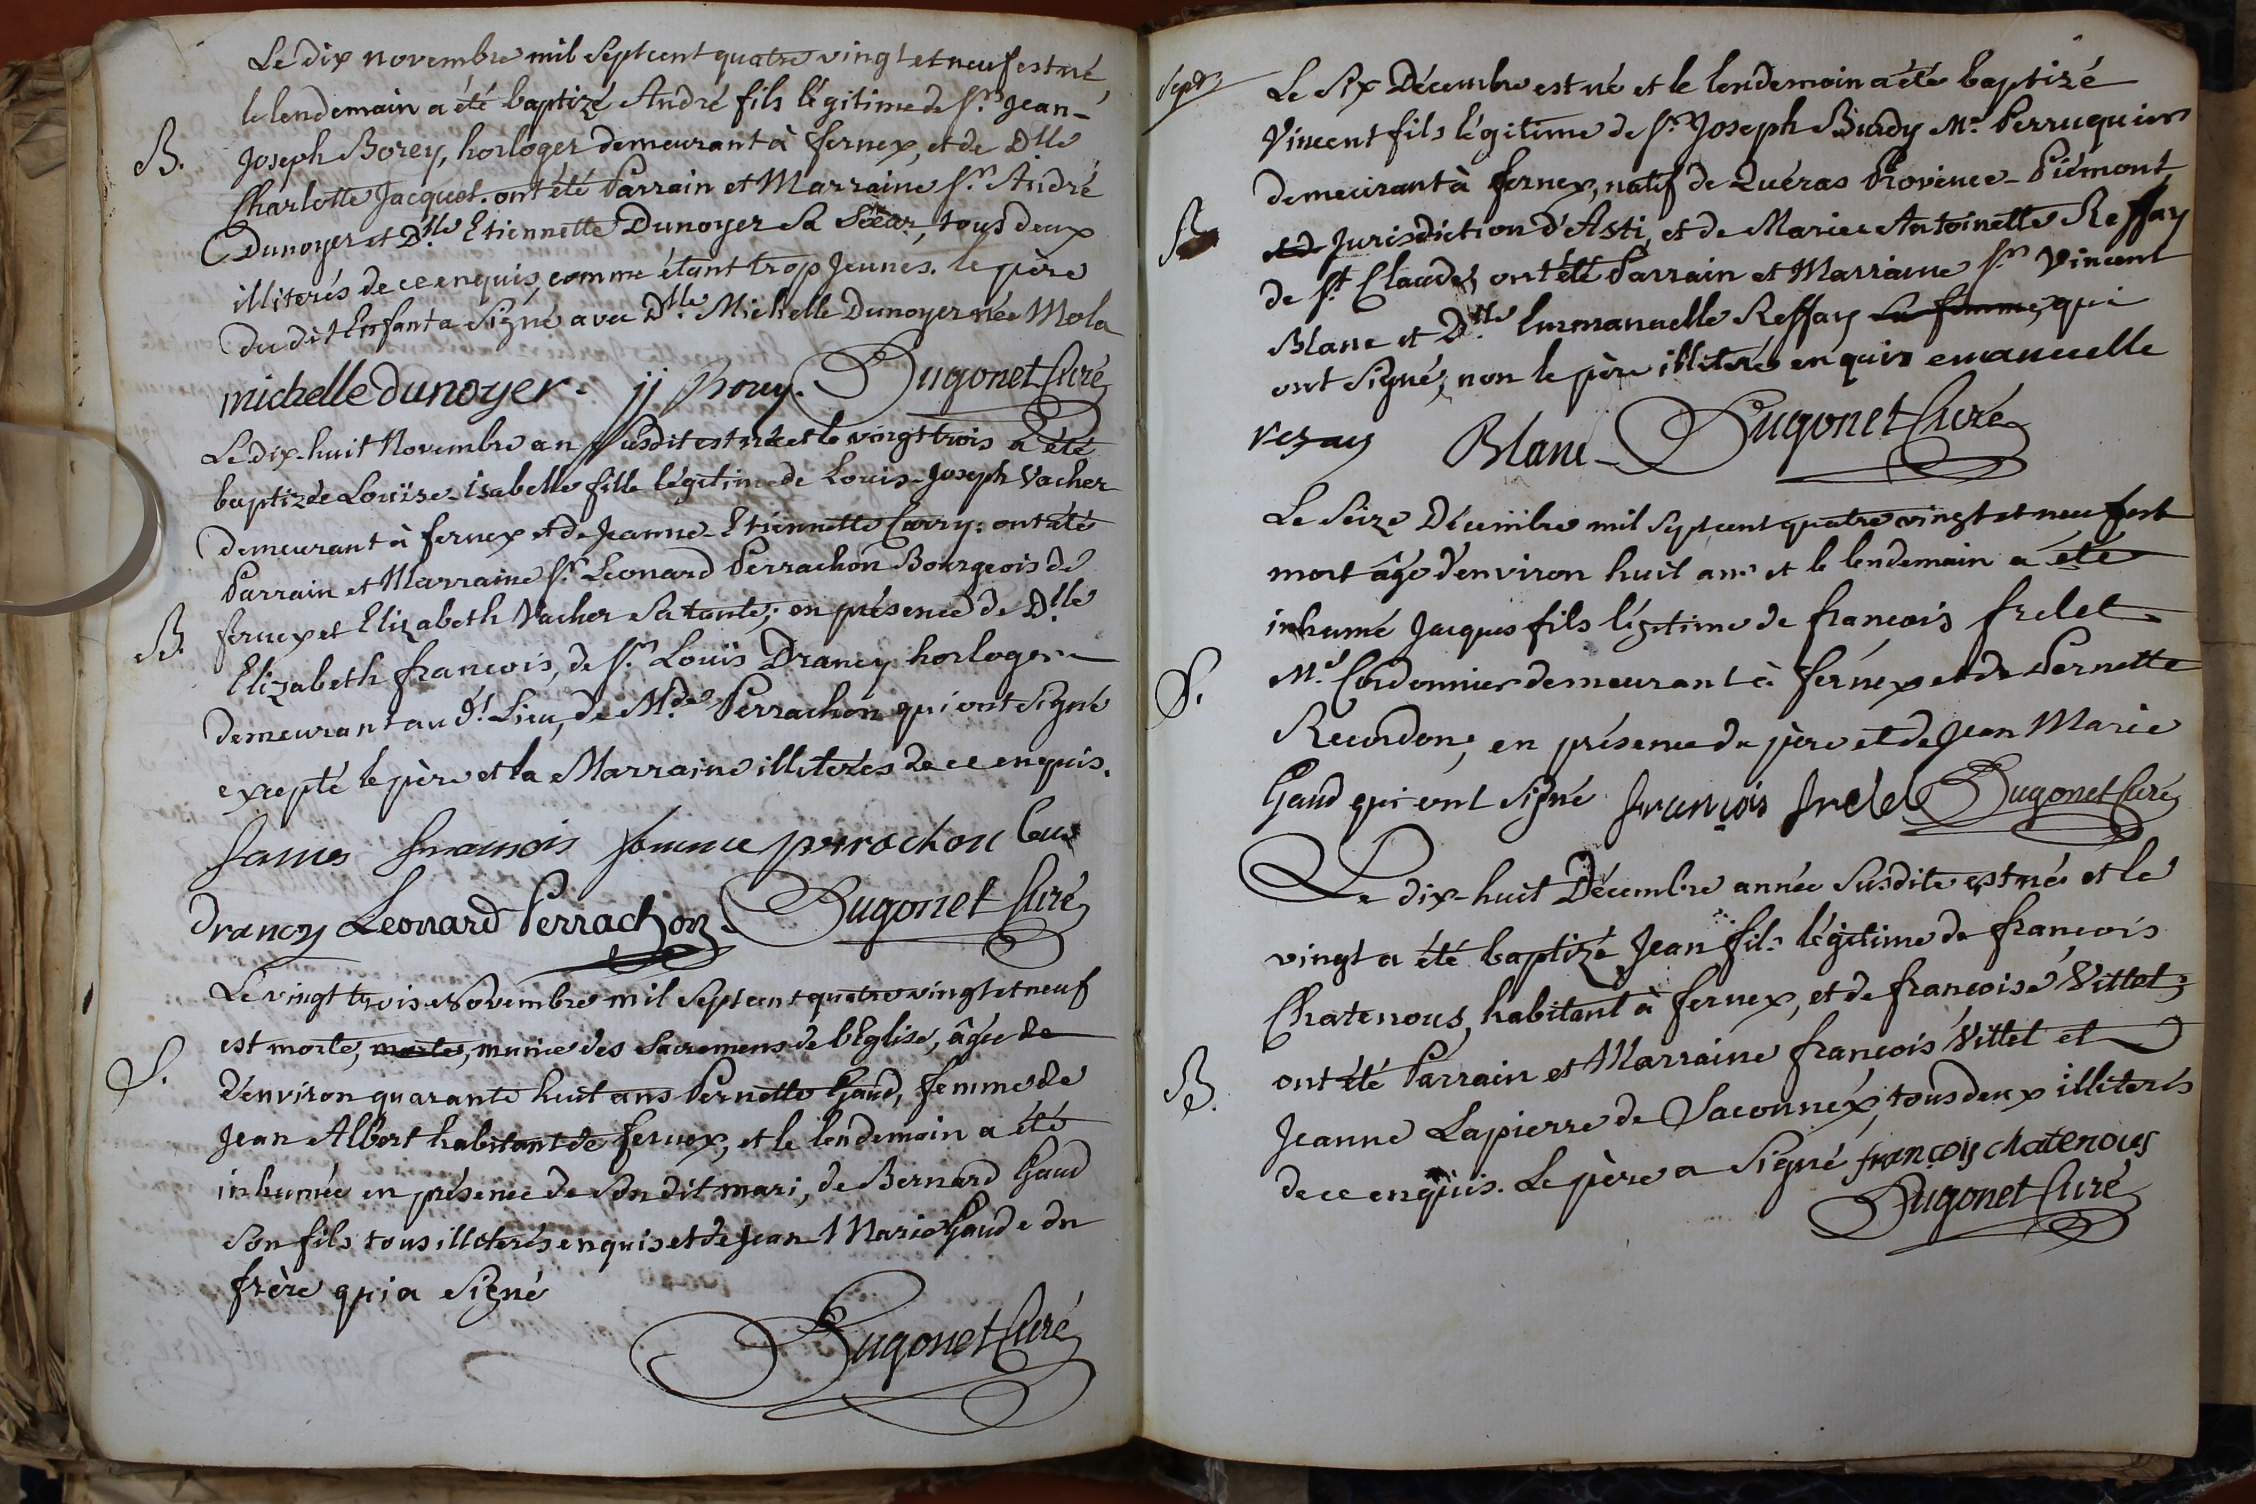 Le dix novembre mil sept cent quatre vingt et neuf est né
le lendemain a été baptizé André fils légitime de Sr. Jean-
B.
Joseph Borey, horloger demeurant à fernex, et de Dlle
Charlotte Jacquet. ont été Parrain et Marraine Sr. André
Dunoyer et Dlle Etiennette Dunoyer Sa Sœur, tous deux
illiterés de ce enquis, comme étant trop Jeunes. le père
du dit Enfant a Signé avec Dlle Michelle Dunoyer née Mola
michelle dunoyer. jj Borey. Dugonet Curé
Le dix-huit Novembre an susdit est née et le vingt trois a été
baptizée Louïse-Isabelle fille légitime de Louis-Joseph Vacher
demeurant à fernex et de Jeanne-Etiennette Carry: ont été
Parrain et Marraine Sr. Leonard Perrachon Bourgeois de
B.
fernex et Elizabeth Vacher Sa tante; en présence de Dlle
Elizabeth françois, de Sr. Louïs Drancy horloger
demeurant au dt. Lieu, de Mde Perrachon qui ont Signé
excepté le père et la Marraine illiterés de ce enquis.
françois femme perrochon
drancy Leonard Perrachon. Dugonet Curé
Le vingt trois Novembre mil sept cent quatre vingt et neuf
est morte, morte, munie des Sacremens de l'Eglise, âgée de
S.
d'environ quarante huit ans Pernette Gaud, femme de
Jean Albert habitant de fernex, et le lendemain a été
inhumée en présence de Son dit mari, de Bernard Gaud
Son fils tous illiterés enquis et de Jean Marie Gaud e du
frère qui a Signé
Dugonet Curé
Le Six Décembre est né et le lendemain a été baptizé
Vincent fils légitime de Sr. Joseph Mr. Perruquier
demeurant à fernex, natif de Quéras Province-Piémont
B.
et d Jurisdiction d'Asti, et de Marie Antoinette Reffay
de St. Claude, ont été Parrain et Marraine Sr. Vincent
Blanc et Dlle Emmanuelle Reffay sa femme, qui
ont Signé, non le père illiteré enquis emanuelle
Blanc Dugonet Curé
Le Seize Décembre mil sept cent quatre vingt et neuf est
mort âgé d'environ huit ans et le lendemain a été
inhumé Jacques fils légitime de françois frelet
S.
Me. Cordonnier demeurant à férnex et de Pernette
Recordon, en présence du père et de Jean Marie
Gaud qui ont Signé françois frelet Dugonet Curé
Le dix-huit Décembre année Susdite est né et le
vingt a été baptizé Jean fils légitime de françois
Chatenous, habitant à fernex, et de françoise Vittet;
B.
ont été Parrain et Marraine françois Vittet et
Jeanne Lapierre de Saconnéx, tous deux illiterés
de ce enquis. Le père a Signé françois chatenous
Dugonet Curé